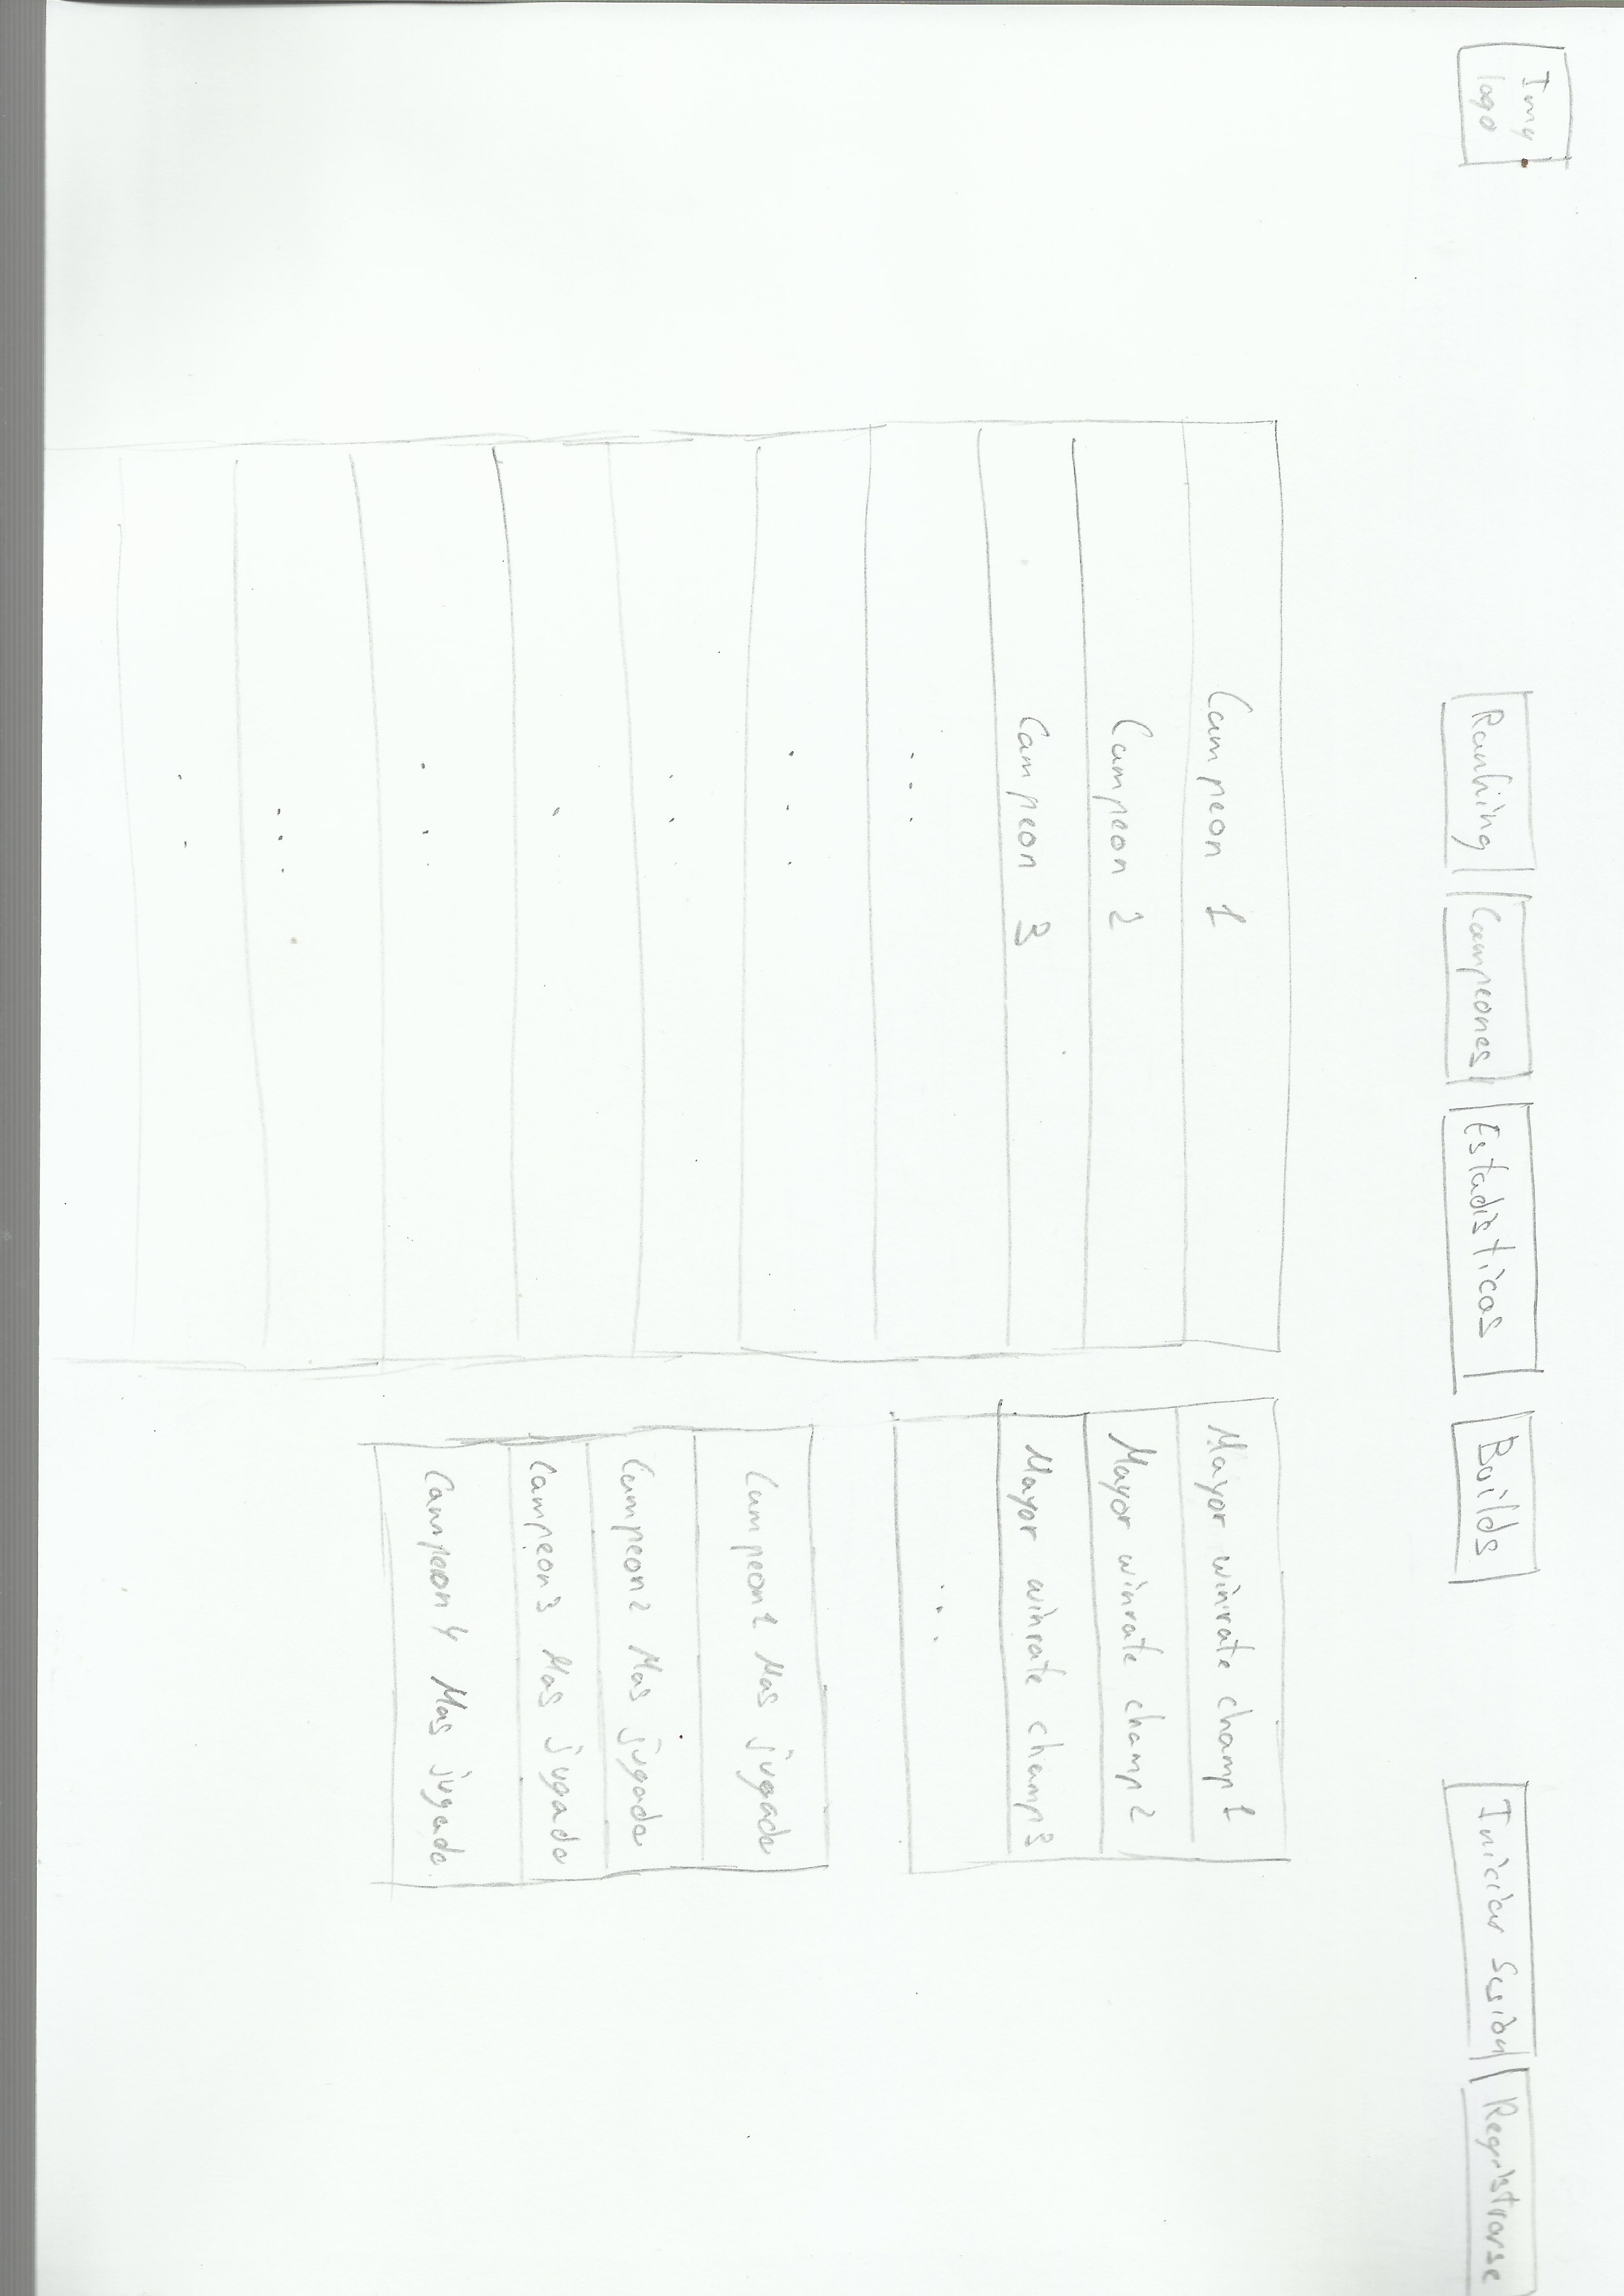 Img
logo
Ranking
Campeones
Estadisticas
Builds
Iniciar Sesión
Registrarse
Campeon 1
Campeon 2
Campeon 3
...
...
...
...
...
Mayor winrate champ 1
Mayor winrate champ 2
Mayor winrate champ 3
...
Campeon 1 Mas jugado
Campeon 2 Mas jugado
Campeon 3 Mas jugado
Campeon 4 Mas jugado